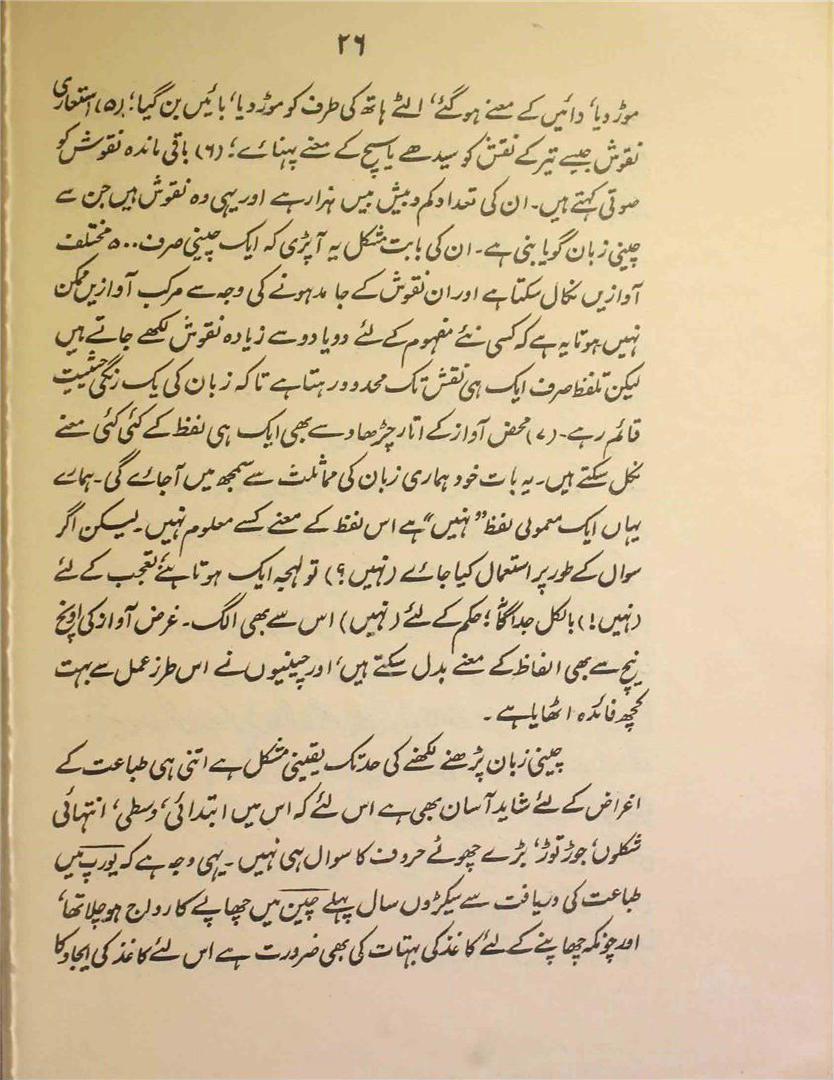 ۲۶
موڑ دیا‘ دائیں کے معنے ہوگئے‘ الٹے ہاتھ کی طرف کو موڑ دیا‘ بائیں بن گیا؛ (۵) استعاری
نقوش جیسے تیر کے نقش کو سیدھے یا سچ کے معنے پہنائے؛ (۶) باقی ماندہ نقوش کو
صوتی کہتے ہیں۔ ان کی تعداد کم و بیش بیس ہزار ہے اور یہی وہ نقوش ہیں جن سے
چینی زبان گویا بنی ہے۔ ان کی بابت مشکل یہ آپڑی کہ ایک چینی صرف ۵۰۰ مختلف
آوازیں نکال سکتا ہے اور ان نقوش کے جامد ہونے کی وجہ سے مرکب آوازیں ممکن
نہیں ہوتا یہ ہے کہ کسی نئے مفہوم کے لئے دو یا دو سے زیادہ نقوش لکھے جاتے ہیں
لیکن تلفظ صرف ایک ہی نقش تک محدود رہتا ہے تاکہ زبان کی یک رنگی حیثیت
قائم رہے۔ (۷) محض آواز کے اتار چڑھاو سے بھی ایک ہی لفظ کے کئی کئی معنے
نکل سکتے ہیں۔ یہ بات خود ہماری زبان کی مماثلت سے سمجھ میں آجائے گی۔ ہمارے
یہاں ایک معمولی لفظ ”نہیں“ ہے اس لفظ کے معنے کسے معلوم نہیں۔ لیکن اگر
سوال کے طور پر استعمال کیا جائے (نہیں؟) تو لہجہ ایک ہوتا ہے‘ تعجب کے لئے
(نہیں!) بالکل جداگانہ؛ حکم کے لئے (نہیں) اس سے بھی الگ۔ غرض آواز کی اونچ
نیچ سے بھی الفاظ کے معنے بدل سکتے ہیں‘ اور چینیوں نے اس طرز عمل سے بہت
کچھ فائدہ اٹھایا ہے۔
چینی زبان پڑھنے لکھنے کی حد تک یقینی مشکل ہے اتنی ہی طباعت کے
اغراض کے لئے شاید آسان بھی ہے اس لئے کہ اس میں ابتدائی‘ وسطی‘ انتہائی
شکلوں‘ جوڑ توڑ‘ بڑے چھوٹے حروف کا سوال ہی نہیں۔ یہی وجہ ہے کہ یورپ میں
طباعت کی دریافت سے سیکڑوں سال پہلے چین میں چھاپے کا رواج ہوچلا تھا‘
اور چونکہ چھاپنے کے لئے کاغذ کی بہتات کی بھی ضرورت ہے اس لئے کاغذ کی ایجاد کا